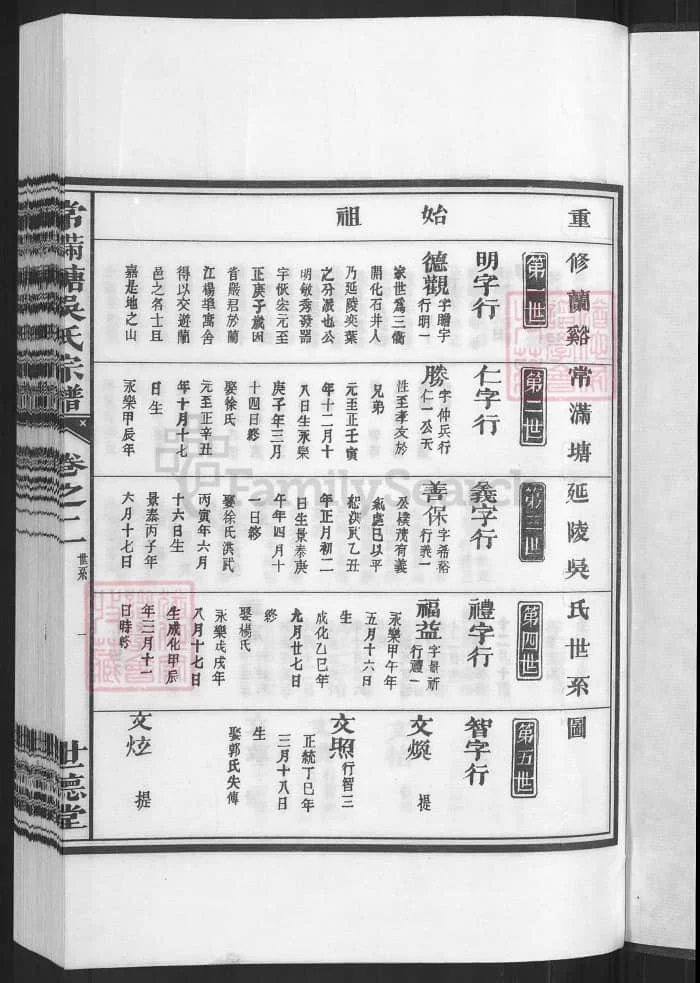 重修蘭谿常滿塘延陵吳氏世系圖
始祖
第一世
明字行
德觀 字瞻宇 行明一
家世爲三衢
開化石井人
乃延陵奕葉
之分派也公
明敏秀發器
宇恢宏元至
正庚子歲因
省嚴君於蘭
江楊埠寓舍
得以交遊蘭
邑之名士且
嘉是地之山
第二世
仁字行
勝 字仲兵行 仁一公天
性至孝友於
兄弟
元至正壬寅
年十二月十
八日生永樂
庚子年三月
十四日終
娶徐氏
元至正辛丑
年十月十七
日生
永樂甲辰年
第三世
義字行
善保 字希裕 行義一
公樸茂有義
氣處已以平
恕洪武乙丑
年正月初二
日生景泰庚
午年四月十
一日終
娶徐氏洪武
丙寅年六月
十六日生
景泰丙子年
六月十七日
第四世
禮字行
福益 字景祈 行禮一
永樂甲午年
五月十六日
生
成化乙巳年
九月廿七日
終
娶楊氏
永樂戊戌年
八月十七日
生成化甲辰
年三月十一
日時終
第五世
智字行
文煥 提
文照 行智三
正統丁巳年
三月十八日
生
娶郭氏失傳
文炫 提
常滿塘吳氏宗譜
卷之二
世系
一
世德堂
FamilySearch